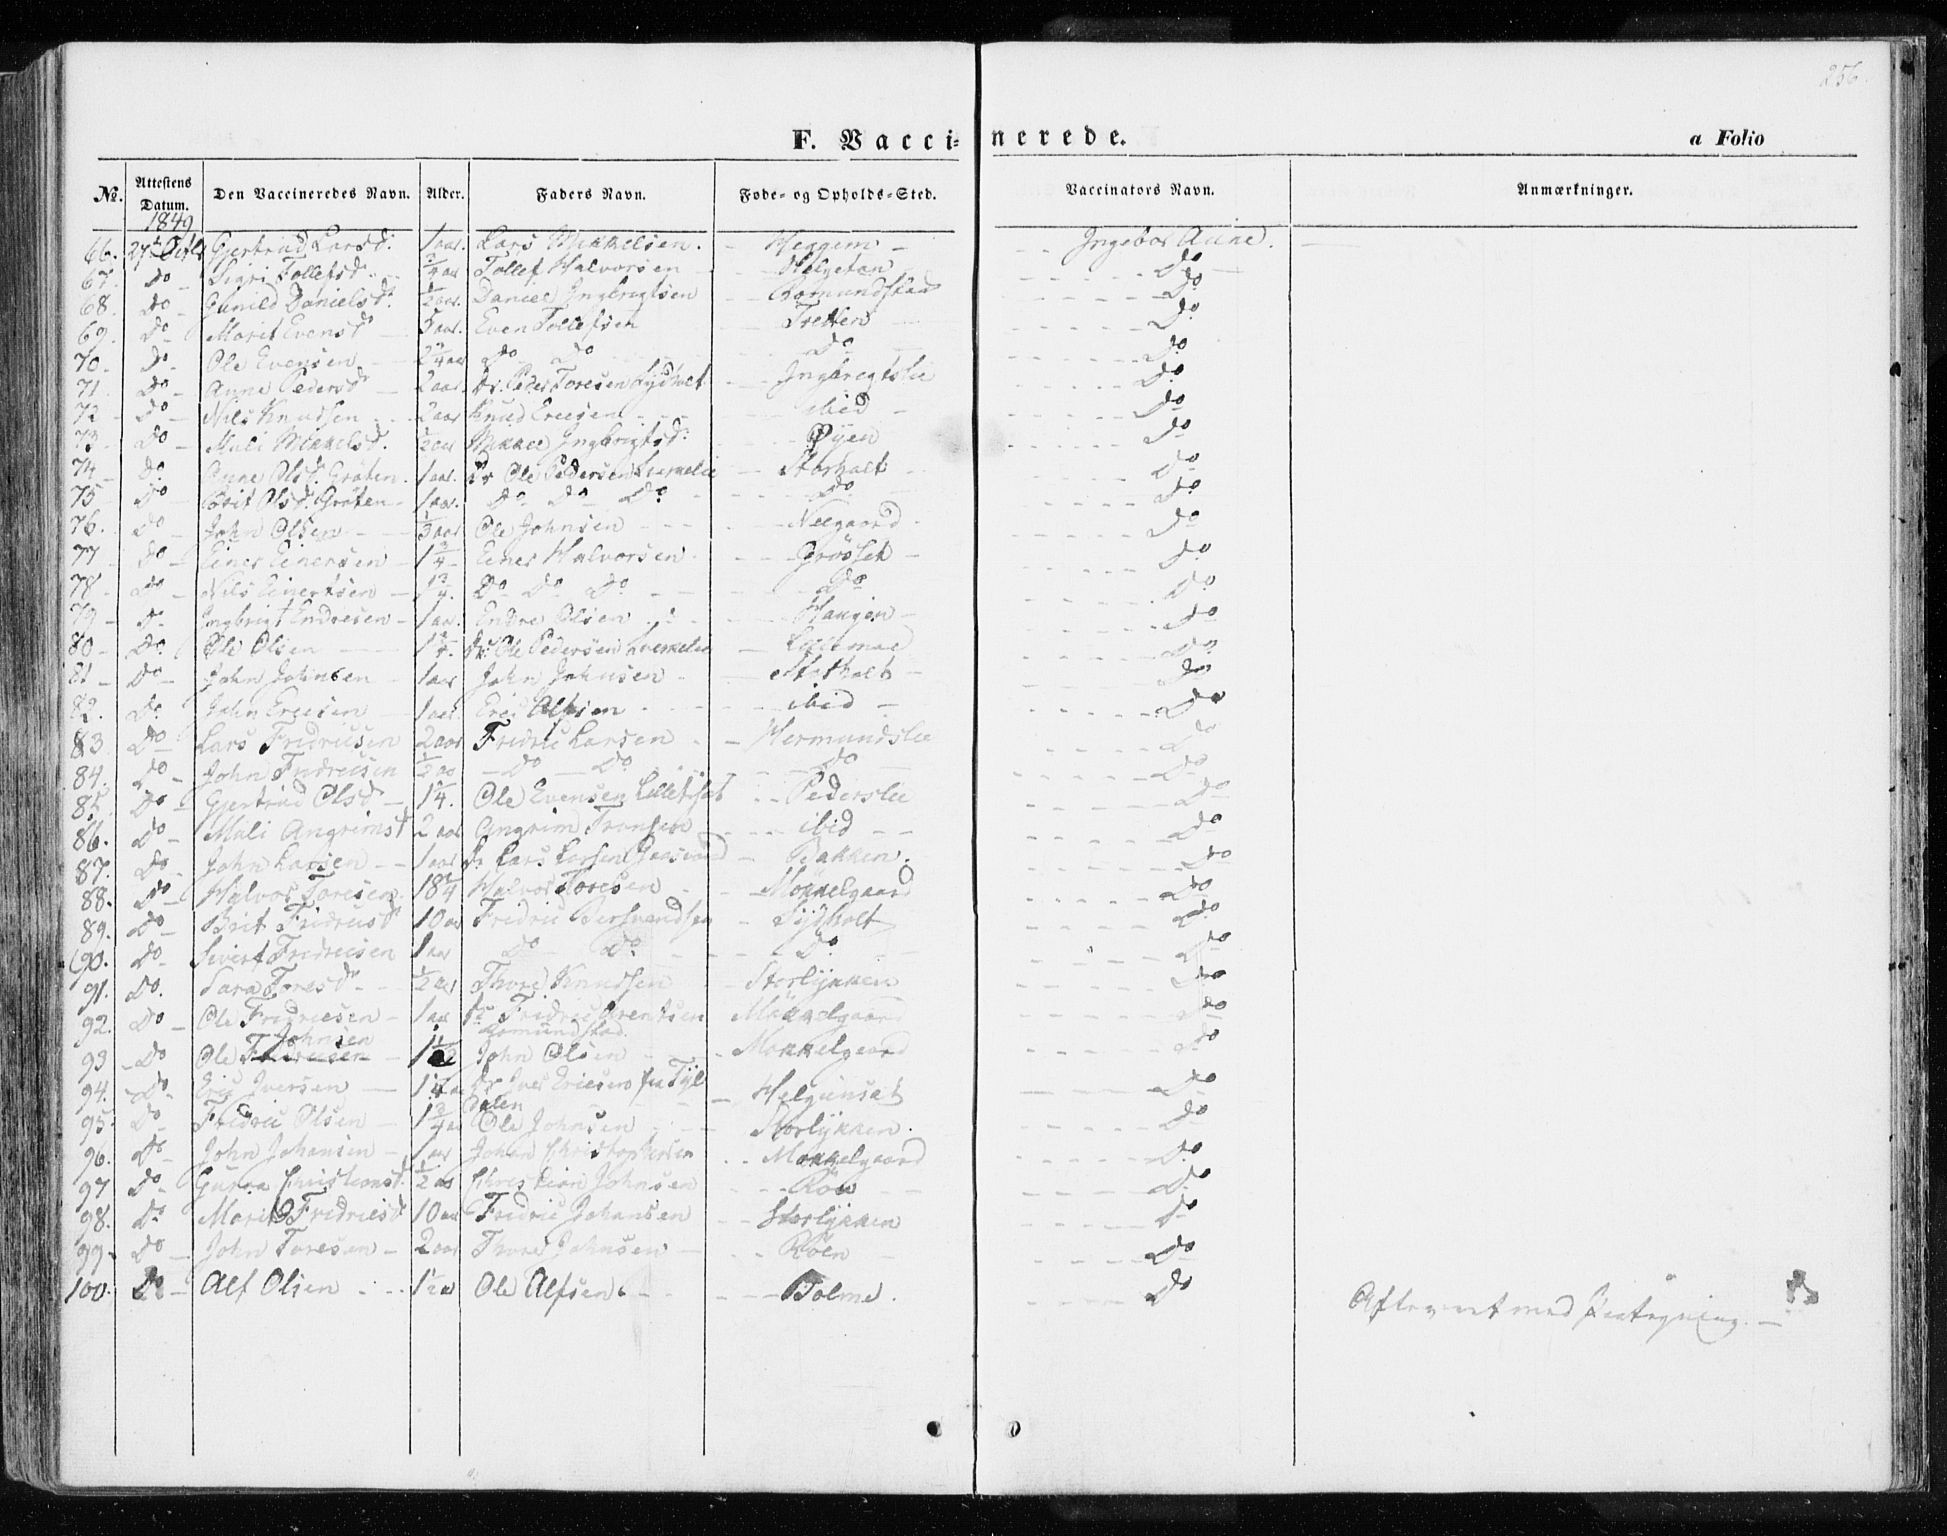 256.
F. Vaccinerede.
a Folio
No. Attestens Datum. Den Vaccineredes Navn. Alder. Faders Navn. Føde- og Opholds-Sted. Vaccinators Navn. Anmærkninger.
1849
66. 27 Gjertrud Larsd. 1 aar. Lars Mikkelsen. Heggem Ingebor Aune.
67. Do Sigri Tollefsd. 3/4 aar Tollef Halvorsen Helgetun Do
68. Do Gunild Danielsd. 1/2 aar. Daniel Ingbrigtsen Romundstad Do
69. Do Marit Evensd 5 aar. Even Tollefsen Tretten Do
70. Do Ole Evensen Do Do Do Do
71. Do Anne Pedersd 2 aar. Peder Toresen Ingbregtslie Do
72 Do Nils Knudsen 2 aar Knud Ericsen ibid Do
73 Do Mali Mikkelsd. 1/2 aar Mikkel Ingbrigtsd. Øyen Do
74 Do Anne Olsd. Gråten. 1 aar. Ole Pedersen Storholt Do
75 Do Brit Olsd. Gråten 1 aar. Do Do Do Do Do
76. Do John Olsen Ole Johnsen Do
77 Do Einer Einersen 1 3/4 Einer Halvorsen Grøset Do
78 Do Nils Einertsen 1 3/4. Do Do Do Do Do
79 Do Ingbrigt Endresen 1 aar. Endre Olsen Haugen Do
80 Do. Ole Olsen Ole Pedersen Do
81 Do John Johnsen 1 aar John Johnsen Storholt Do
82. Do. John Ericsen 1 aar. Eric Alfsen ibid Do
83. Do Lars Fridricsen 2 aar Fridric Larsen Hermundslie Do
84. Do John Fridricsen 1/2 aar Do Do Do Do
85. Do Gjertrud Olsd Ole Evensen Pederslie Do
86. Do Mali Angrimsd 2 aar Angrim Tronsen ibid Do
87. Do John Larsen 1 aar Lars Larsen Bakken. Do
88. Do Halvor Toresen Halvor Toresen Mokkelgaard Do
89. Do Brit Fridricsd 10 aar Fridric Bersvendsen Sydholt Do
90. Do Sivert Fridricsen 1 aar Do Do Do Do
91. Do. Sara Toresd 1/2 aar Thore Knudsen Storlykken Do
92. Do Ole Fridricsen 1 aar Fridric Arentsen Romundstad. Mokkelgaard Do
Johnsen
93 Do Ole Fridricsen John Olsen Mokkelgaard Do
94. Do. Eric Iversen Iver Ericsen fra Tyldalen Helgunset Do
95. Do Fridric Olsen 1 3/4 aar Ole Johnsen Storlykken. Do
96. Do John Johansen 1 aar Johan Christophersen Mokkelgaard Do
97 Do Guroa Christiansd. 1/2 aar Christian Johnsen Røen Do
98. Do Marit Fridricsd 10 aar Fridric Johansen Storlykken Do
99. Do John Toresen 2 aar Thore Johnsen Røen Do
100. Do Alf Olsen Ole Alfsen. Bolme. Do
med Paategning.